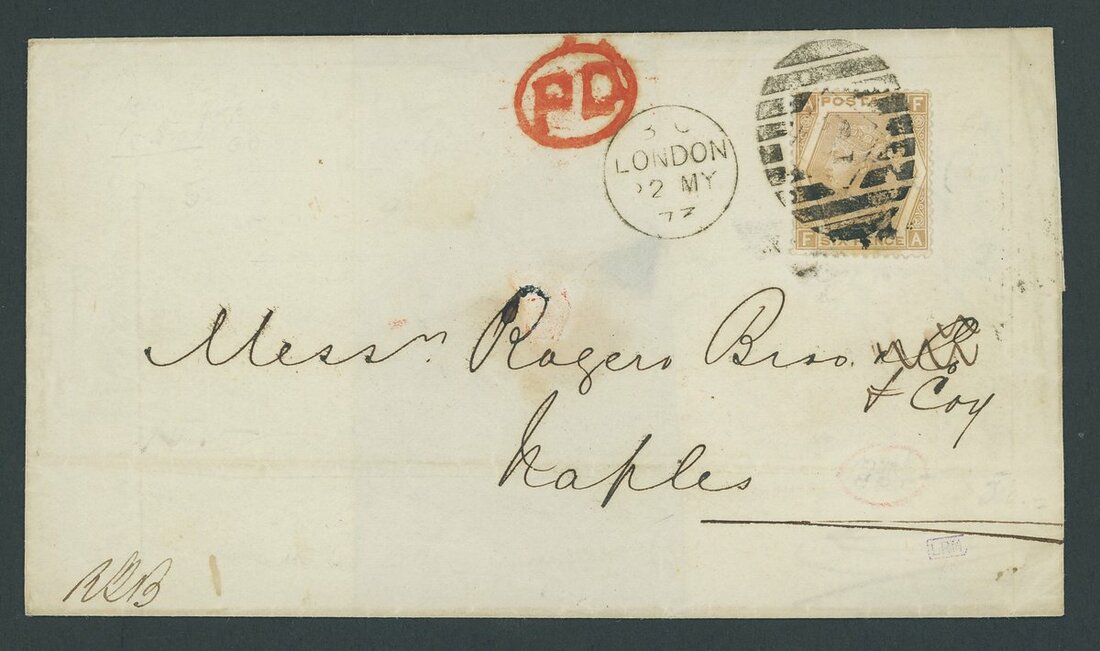 PD
LONDON
2 MY
73
POSTA
F
F
SIX PENCE
A
Messrs Rogers Bros
& Coy
Naples
LRM